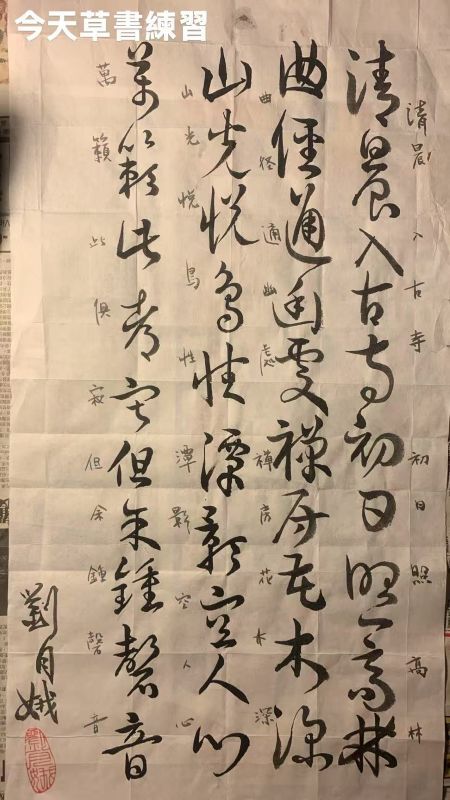 今天草書練習
清晨入古寺初日照高林
清晨入古寺初日照高林
曲徑通幽處禪房花木深
曲径通幽處禪房花木深
山光悅鳥性潭影空人心
山光悅鳥性潭影空人心
萬籟此寂但余鐘磬音
萬籟此俱寂但余鐘磬音
劉月娥